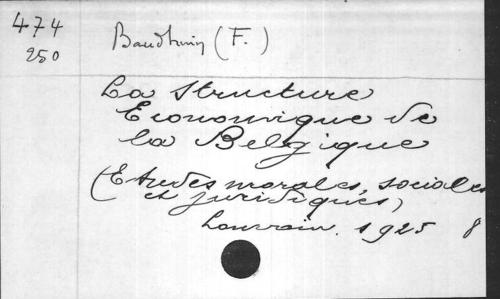 474
250
Baudhuin (F.)
La Structure
Economique de
la Belgique
(Etudes morales, sociales
et juridiques)
Louvain. 1925 8